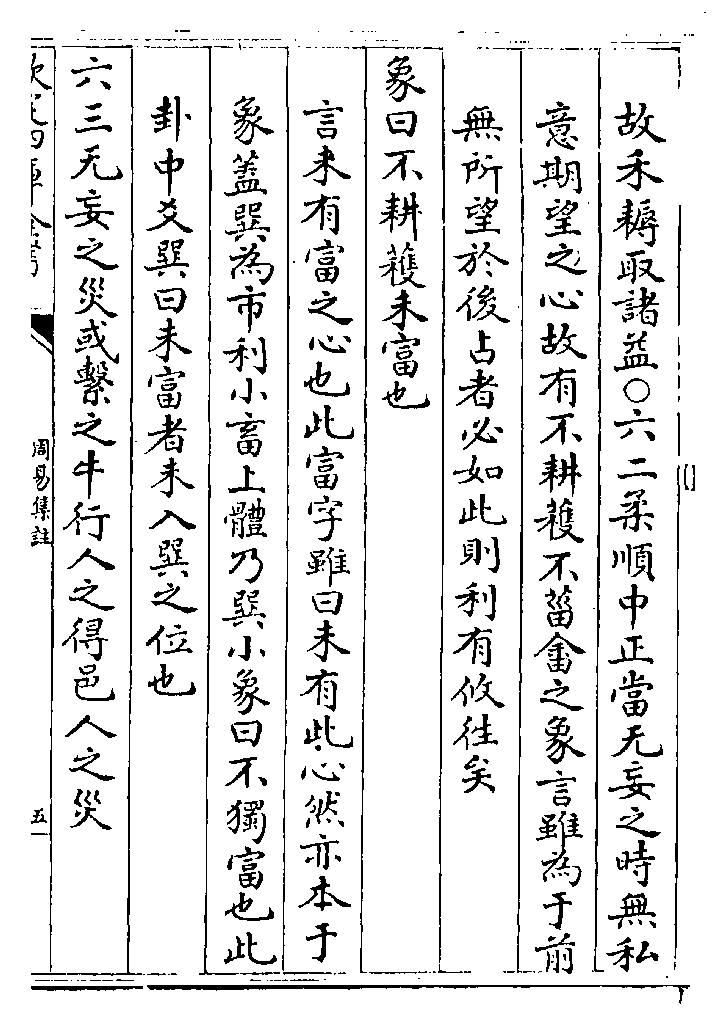 故耒耨取諸益○六二柔順中正當无妄之時無私
意期望之心故有不耕穫不菑畬之象言雖為于前
無所望於後占者必如此則利有攸往矣
象曰不耕穫未富也
言未有富之心也此富字雖曰未有此心然亦本于
象蓋巽為市利小畜上體乃巽小象曰不獨富也此
卦中爻巽曰未富者未入巽之位也
六三无妄之災或繫之牛行人之得邑人之災
欽定四庫全書
周易集註
五一